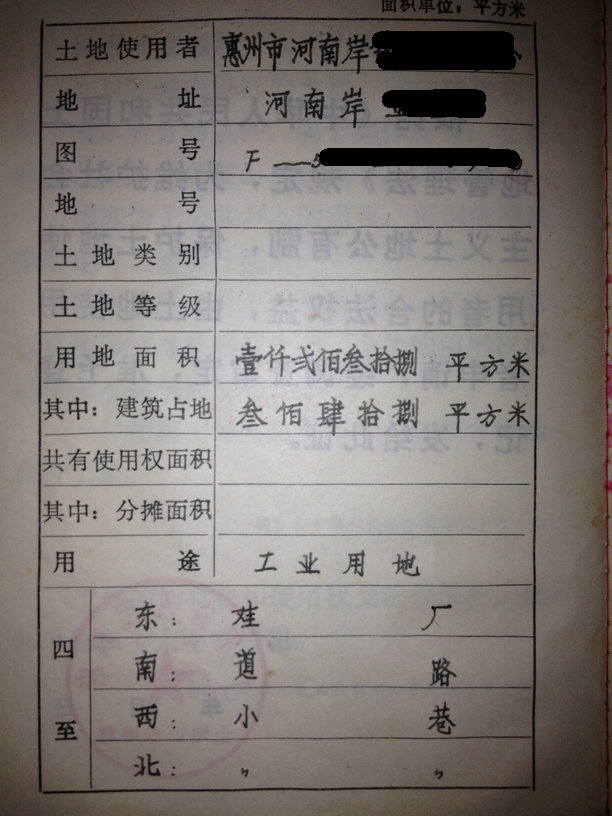 面积单位：平方米
土地使用者 惠州市河南岸
地 址 河南岸
图 号 F—5
地 号
土地类别
土地等级
用地面积 壹仟弍佰叁拾捌 平方米
其中：建筑占地 叁佰肆拾捌 平方米
共有使用权面积
其中：分摊面积
用 途 工业用地
四至
东： 厂
南：道 路
西：小 巷
北：〃 〃